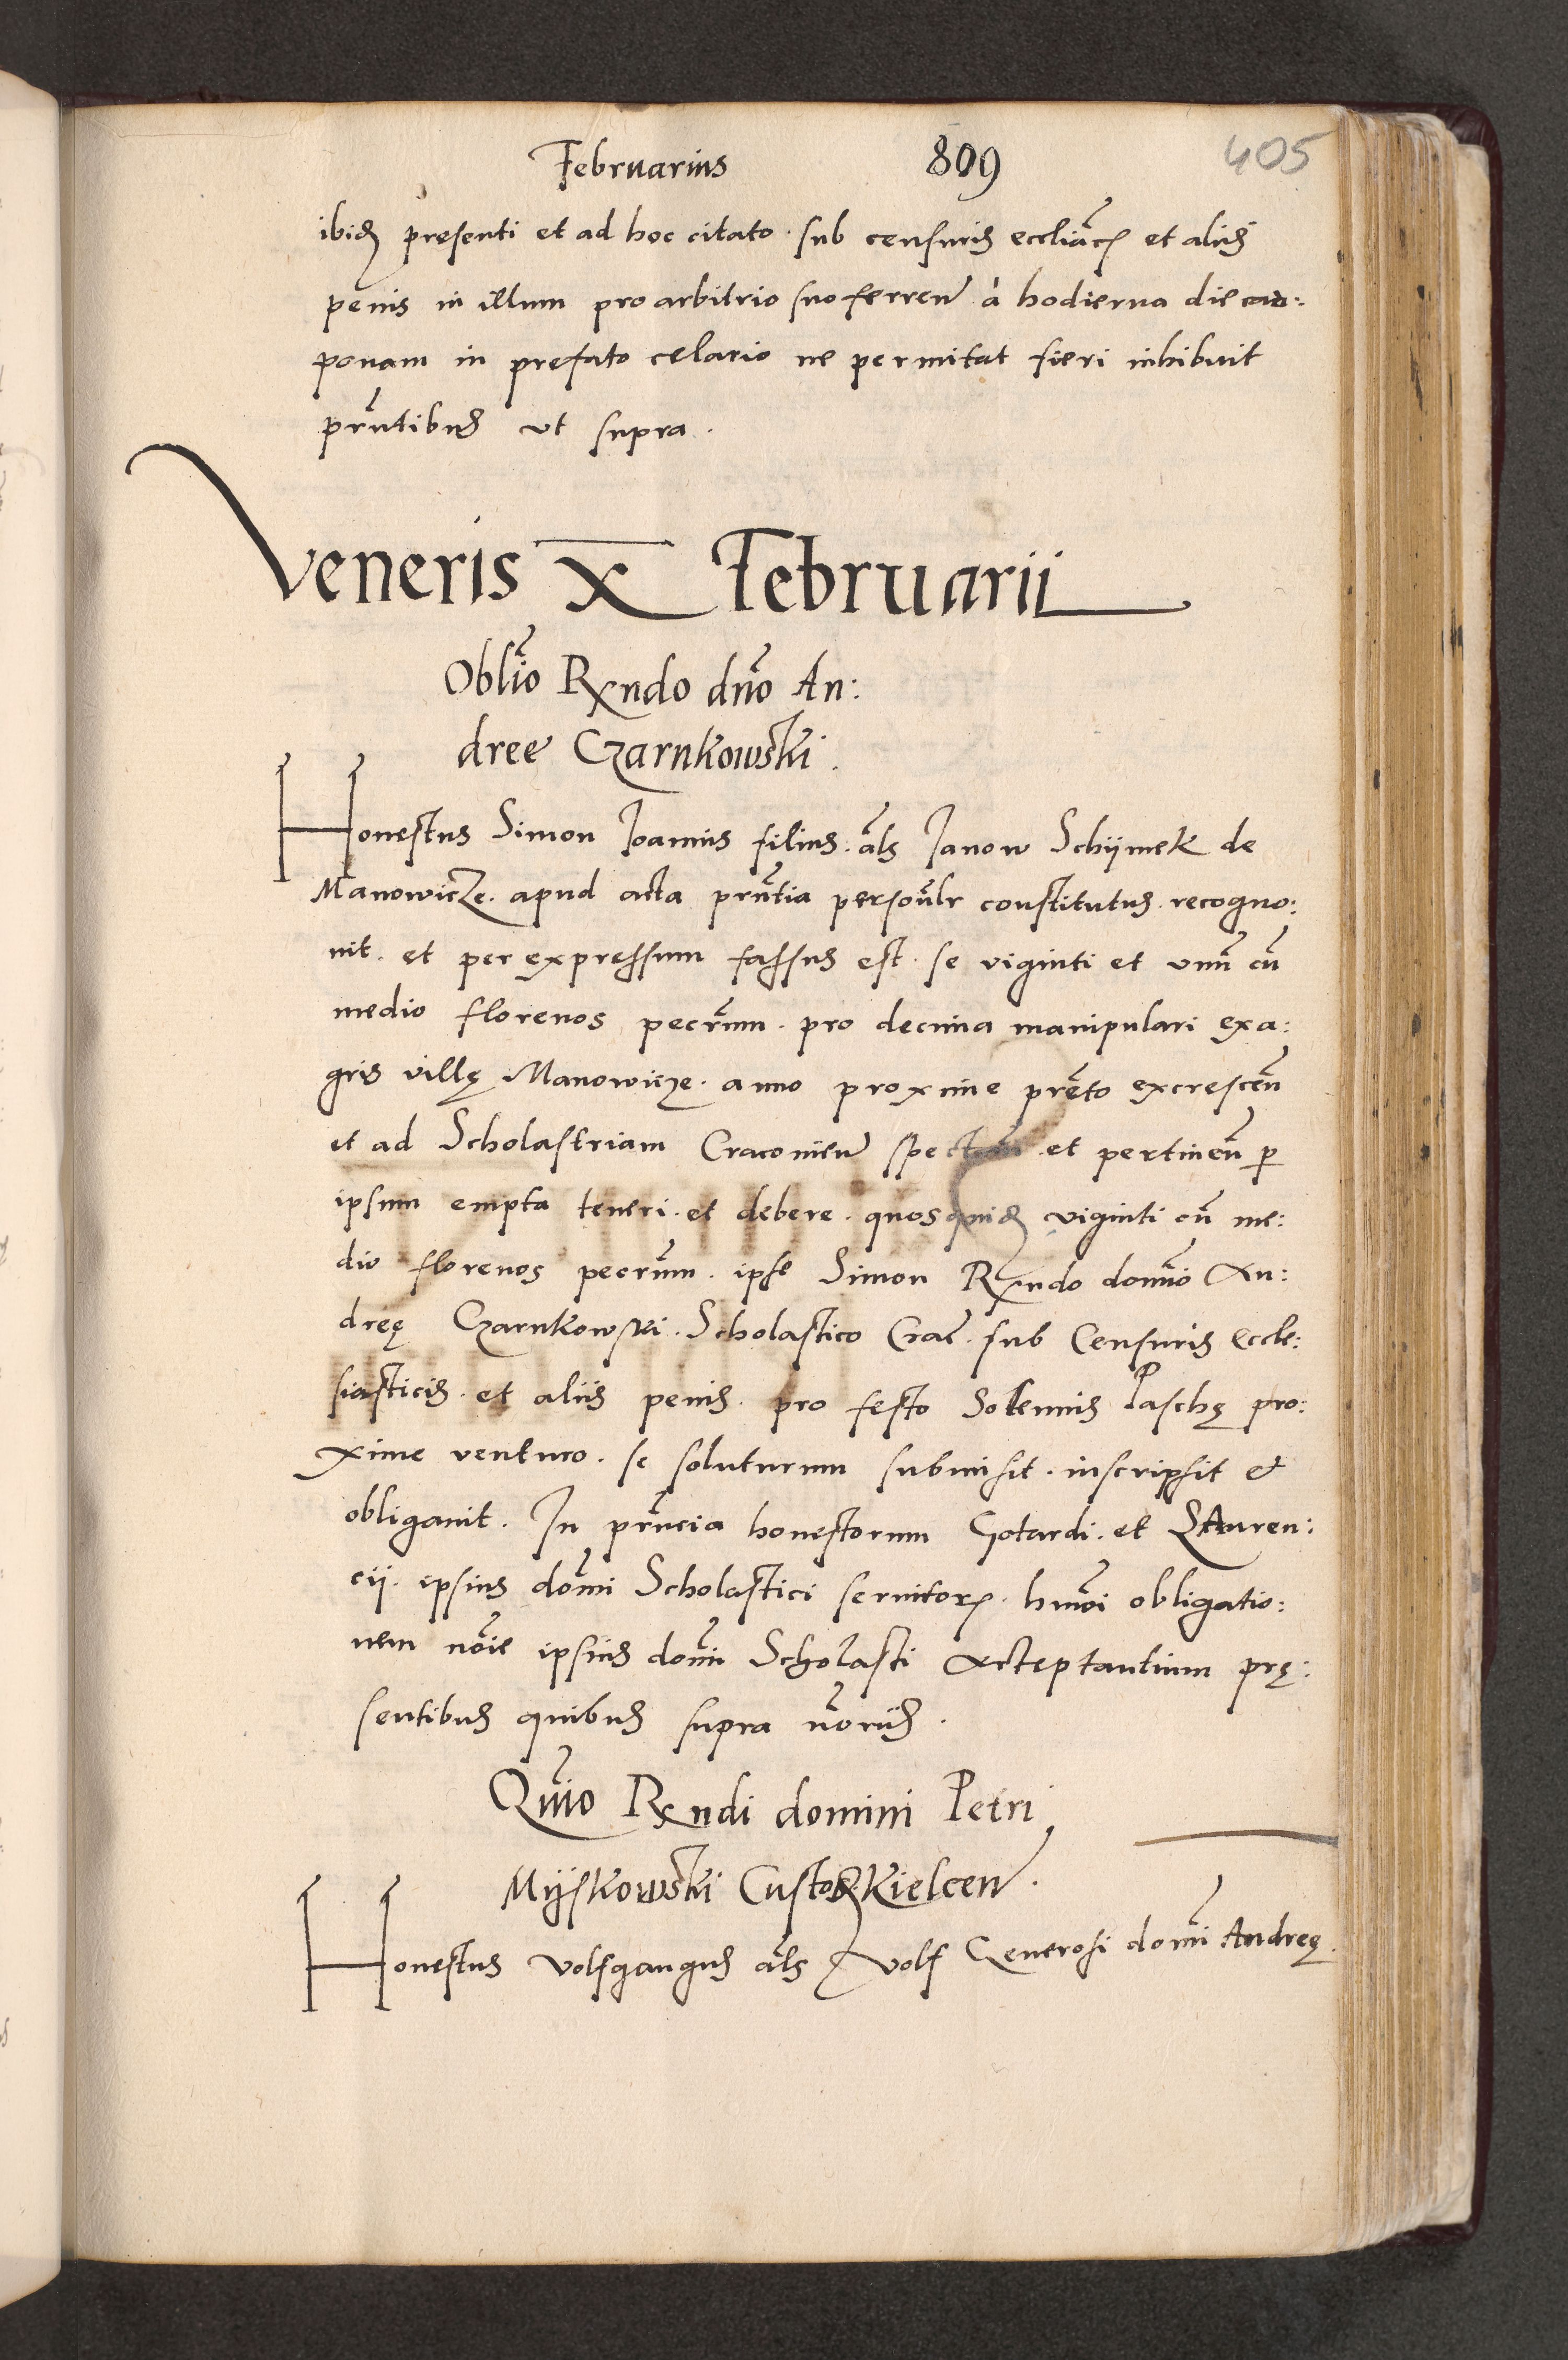 Februarius 809 405
ibidem presenti et ad hoc citato. sub censuris eccliacz et aliis
penis in illum pro arbitrio suo ferren à hodierna die cao:
ponam in prefato celario ne permitat fieri inhibuit
prntibus vt supra.
Veneris X Februarii
Oblio Rxndo dno An:
dree Czarnkowski.
Honestus Simon Joannis filius. als Janow Schÿmek de
Manowicze. apud acta prntia personlr constitutus. recogno:
uit. et per expressum fassus est. se viginti et vnu cu
medio florenos pecrum. pro decima manipulari exa:
gris villę Manowicze. anno proxime preto excrescen
et ad Scholastriam Cracouien spectan. et pertinen per
ipsum empta teneri. et debere. quosquidem viginti cu me:
dio florenos pecrum. ipse Simon Rxndo domno An:
dreę Czarnkowski. Scholastico Crac. sub Censuris Eccle:
siasticis. et aliis penis. pro festo Solennis Paschę pro:
xime venturo. se soluturum submisit. inscripsit et
obligauit. In prncia honestorum Gotardi. et Lauren:
cii. ipsius domi Scholastici seruitorz. hmoi obligatio:
nem noie ipsius domi Scholasti acceptantium prę:
sentibus quibus supra noriis.
Qtuio Rxndi domini Petri
Mÿskowski Custos Kielcen.
Honestus Volfgangus als Volf Generosi domi Andreę.